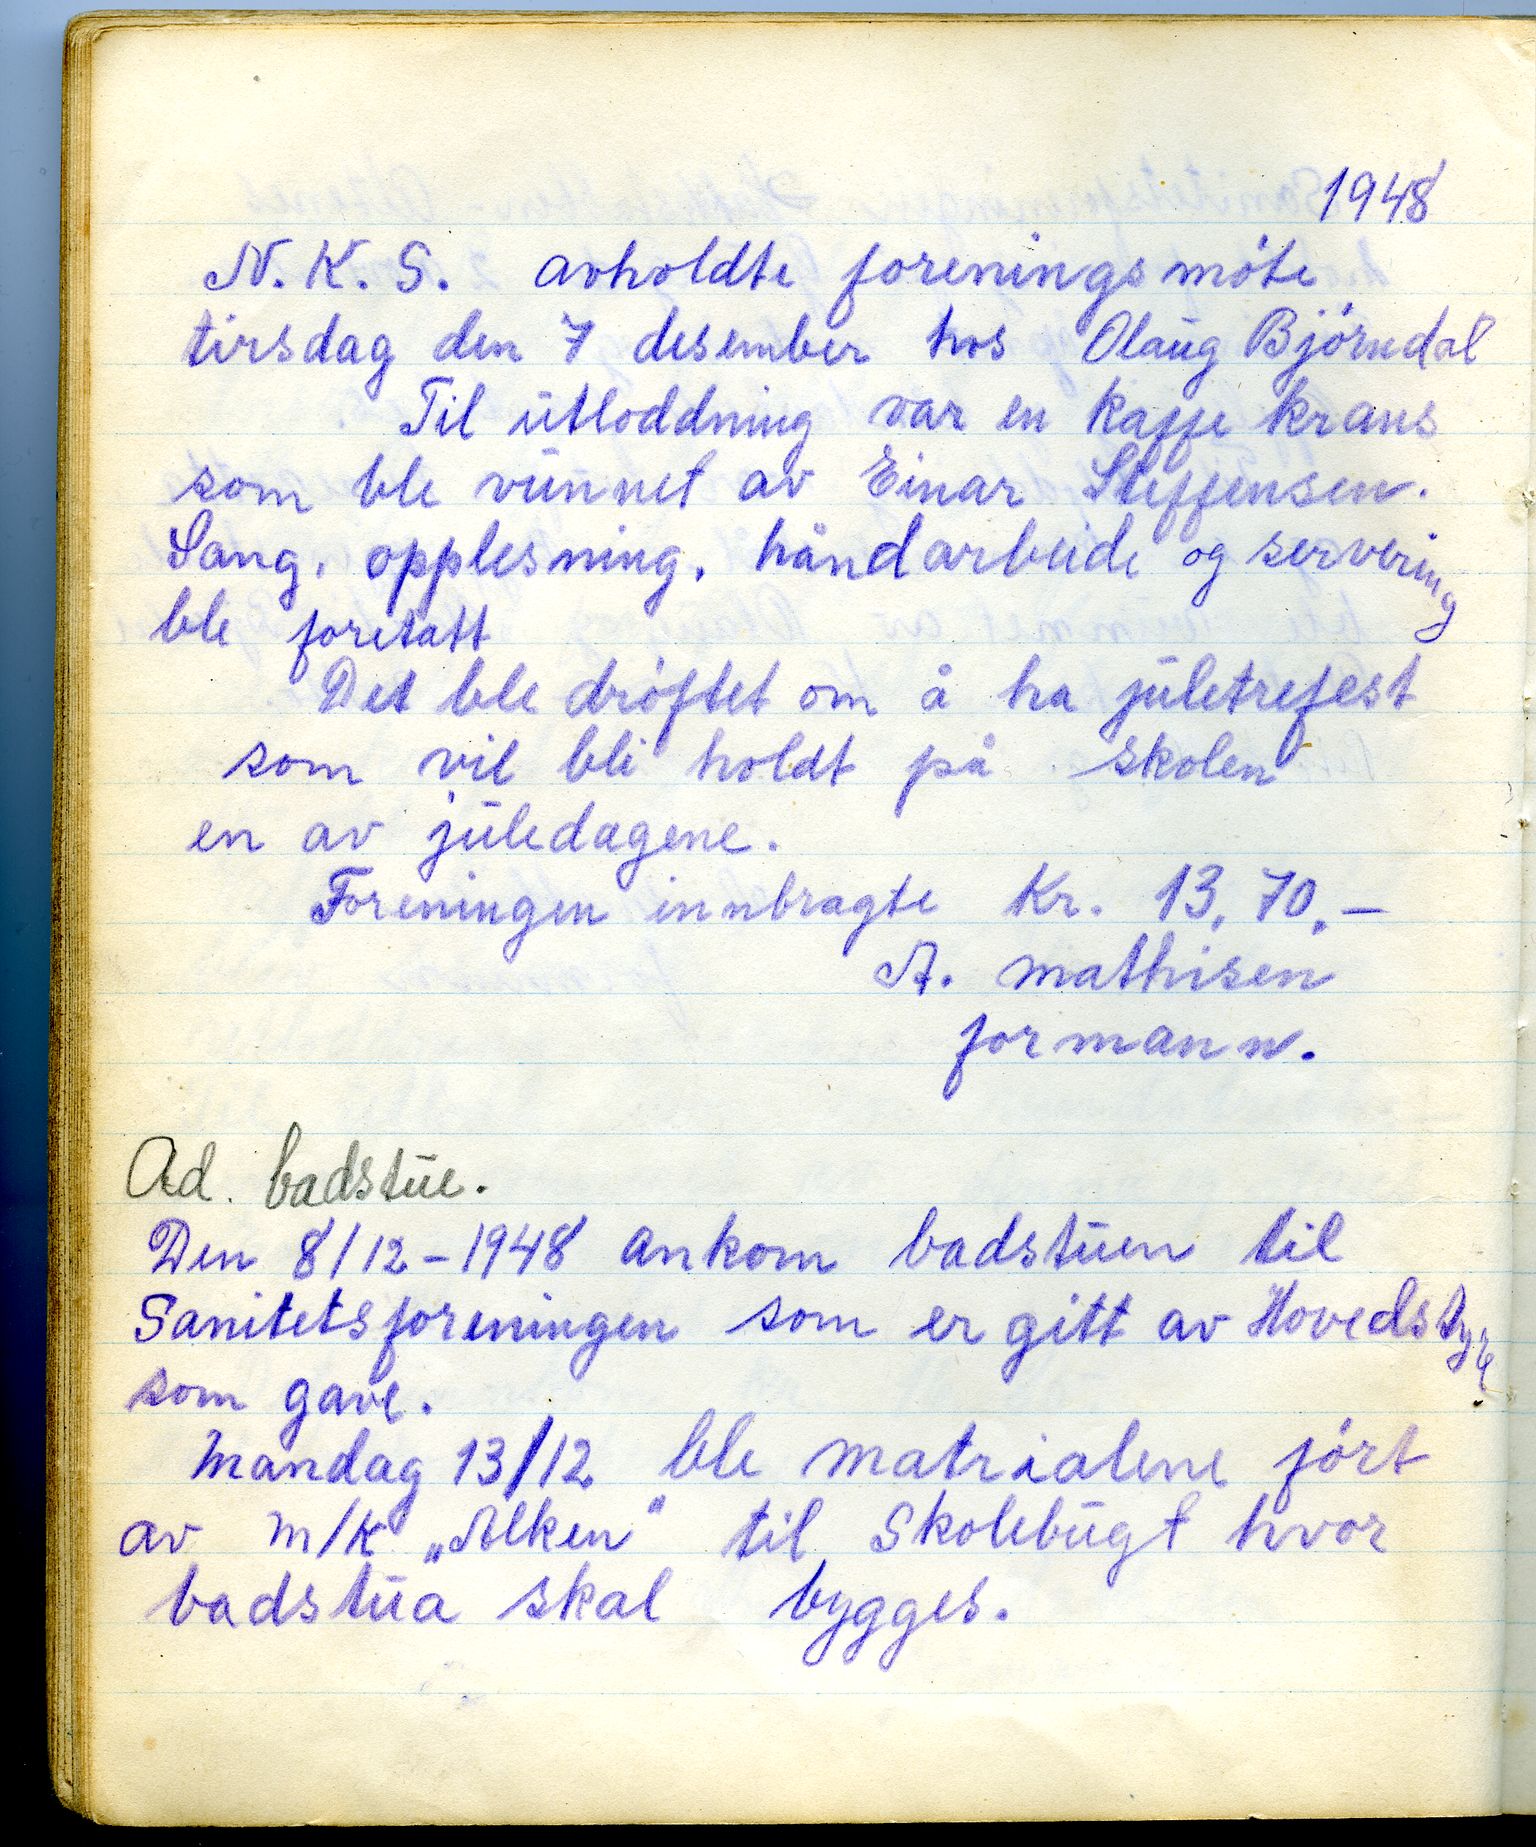 1948
N. K. S. avholdte foreningsmöte
tirsdag den 7 desember hos Olaug Björndal
Til utloddning var en kaffe krans
som ble vunnet av Einar Steffensen.
Sang, opplesning, håndarbeide og servering
ble foretatt
Det ble dröftet om å ha juletrefest
som vil bli holdt på skolen
en av juledagene.
Foreningen innbragte Kr. 13,70,-
A. Mathisen
formann.
Ad. badstue.
Den 8/12-1948 ankom badstuen til
Sanitetsforeningen som er gitt av Hovedstyre
som gave.
Mandag 13/12 ble matrialene fört
av M/K „Alken" til Skolebugt hvor
badstua skal bygges.